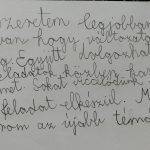 szeretem legjobban
van hogy változatos
Együtt dolgozha
eladatok közben
met. Sokat viccelődünk
feladat elkészül. M
rom az újabb témá